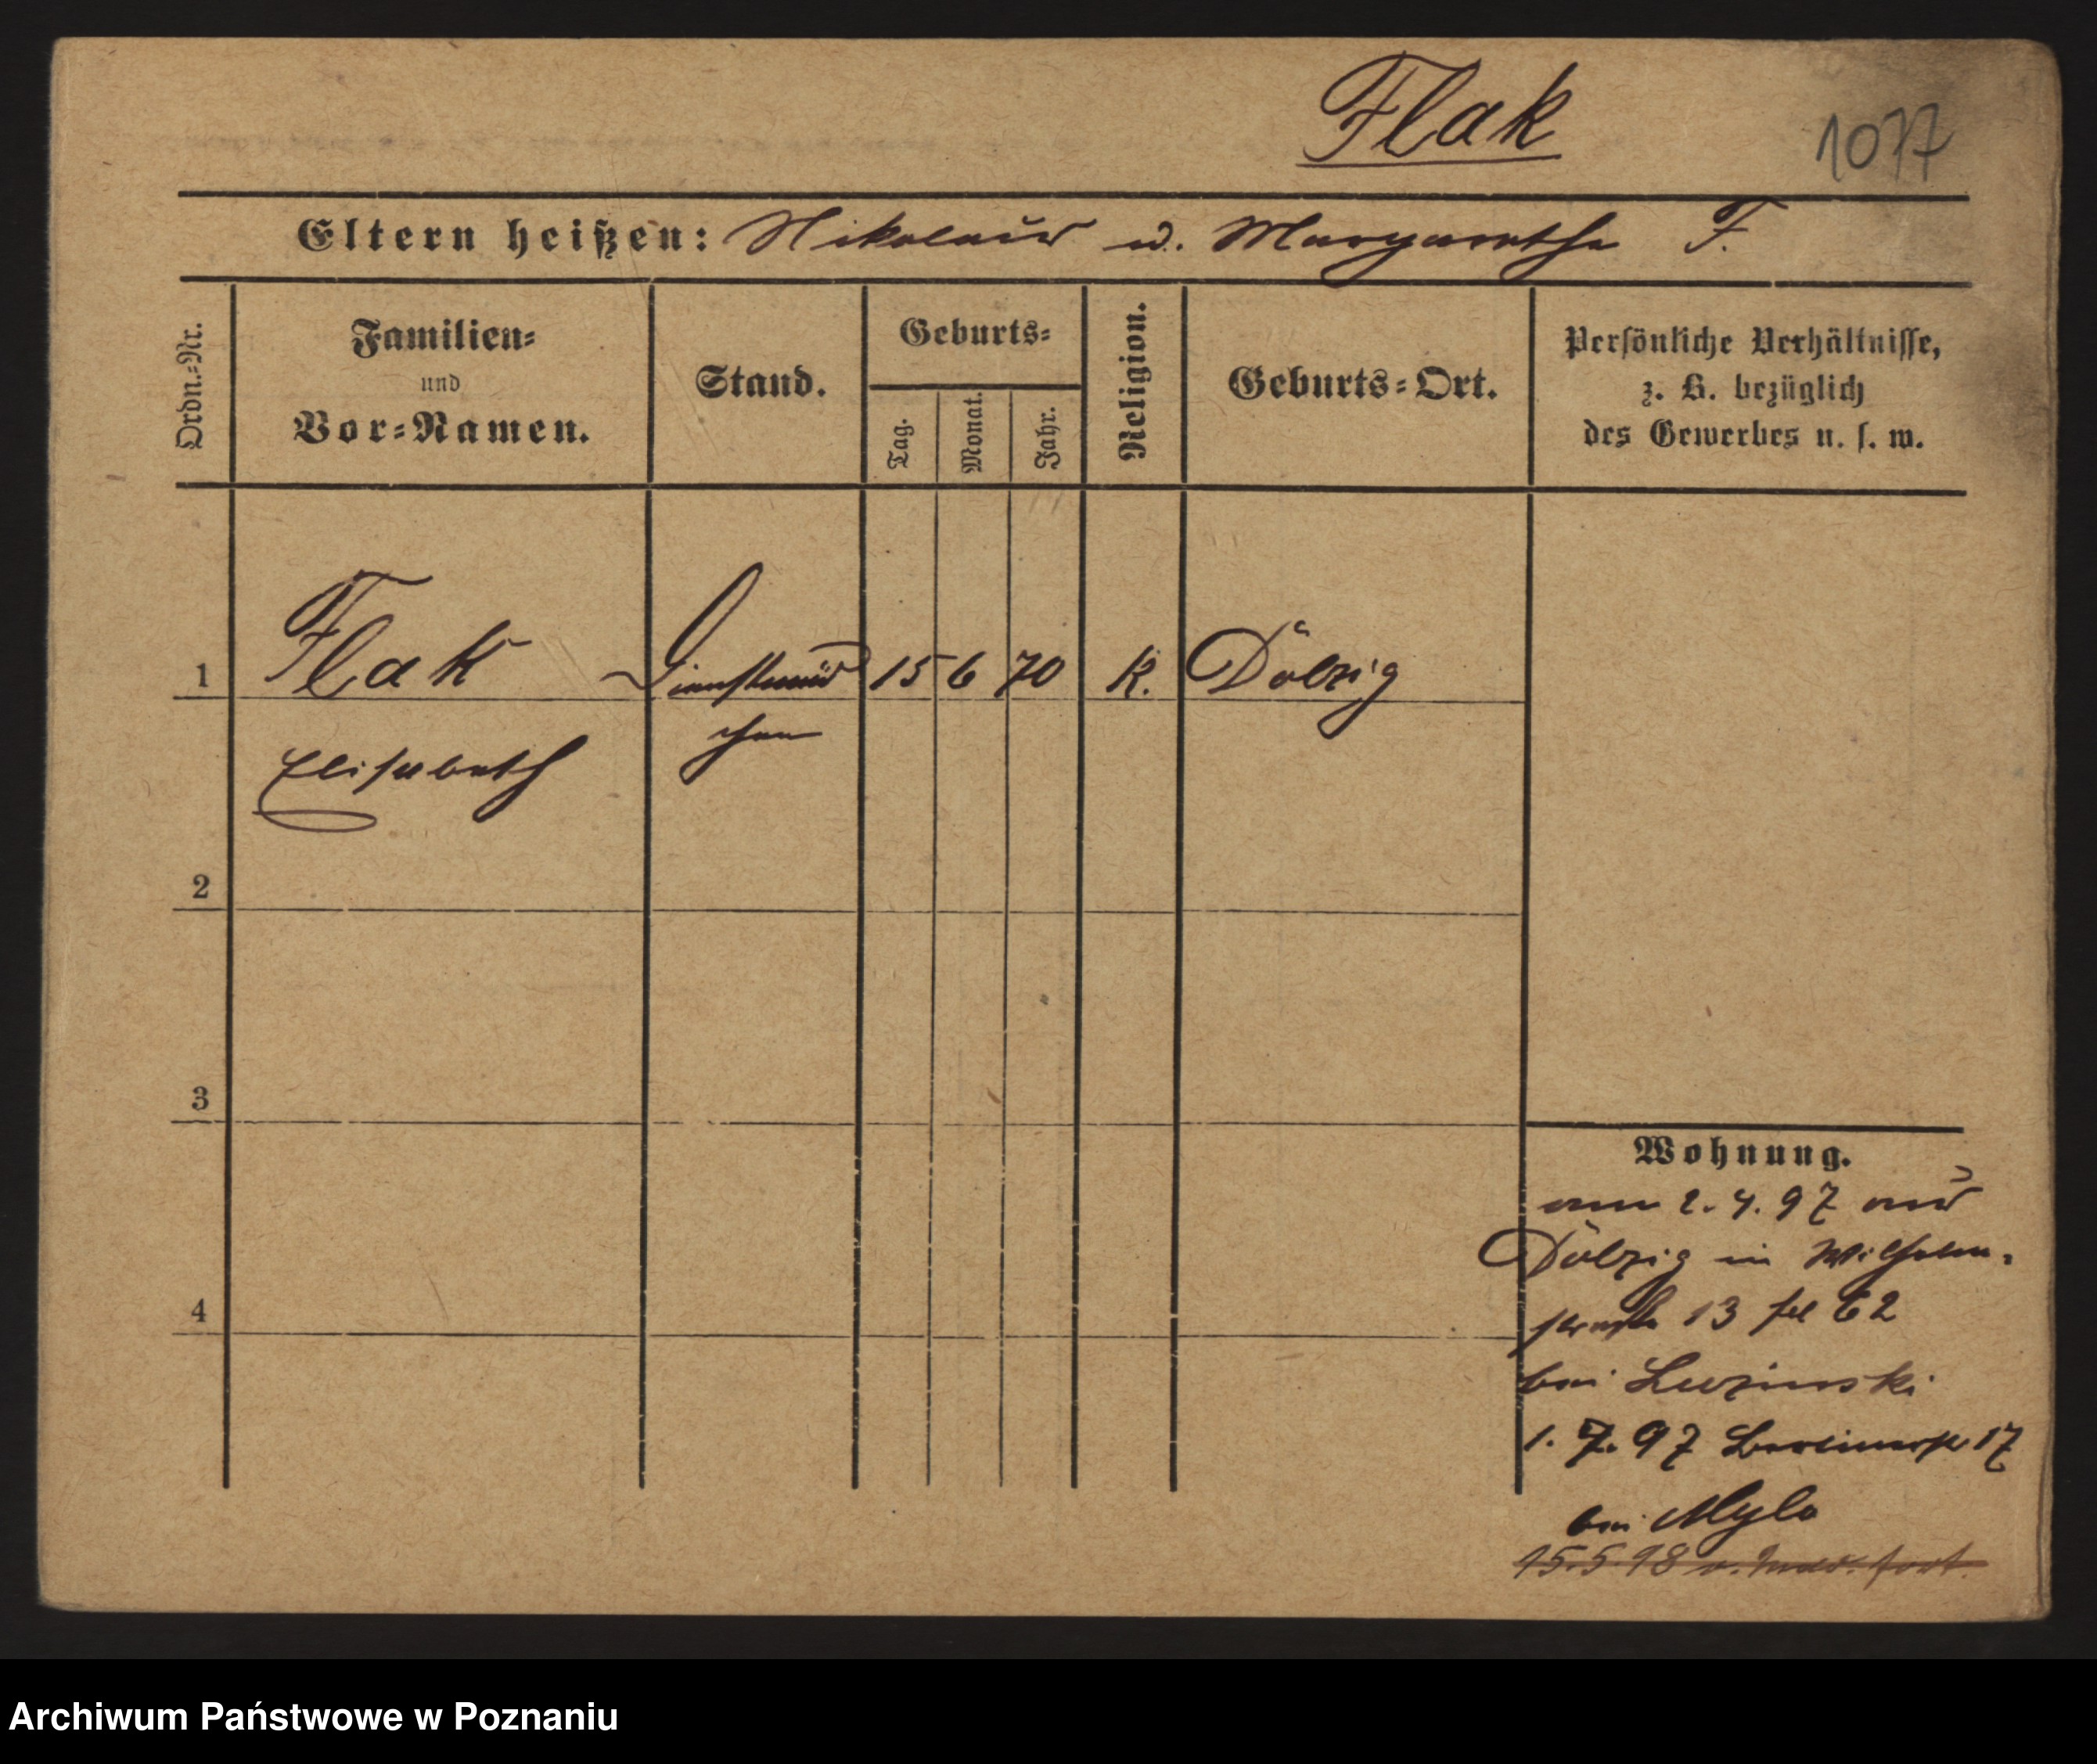 Flak
1077
Eltern heißen: Nikolaus u. Margarethe F.
Ordn.-Nr.
Familien-
und
Vor-Namen.
Stand.
Geburts-
Tag.
Monat.
Jahr.
Religion.
Geburts-Ort.
Persönliche Verhältnisse,
z. B. bezüglich
des Gewerbes u. s. w.
1 Flak Dienstmäd 15 6 70 K. Dolzig
chen
Elisabeth
2
3
4
Wohnung.
am 2.4.97 aus
Dolzig in Wilhelm-
straße 13 62
bei
1.7.97 Berlinerstr 17
bei Mylo
15.5 98 fort.
Archiwum Państwowe w Poznaniu